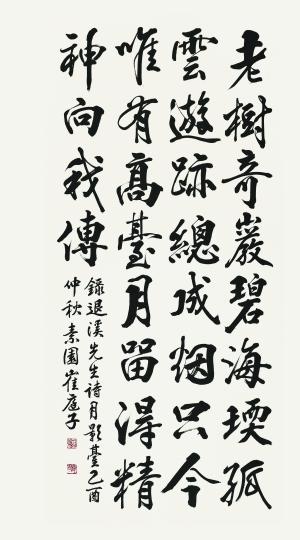 老樹奇巖碧海堧孤
雲遊跡總成烟只今
唯有高臺月留得精
神向我傳
錄退溪先生詩月影臺乙酉
仲秋素園崔庭子